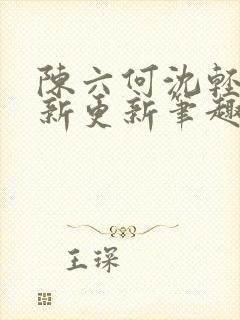 陳六何沈輕
新更新筆趣
王琛